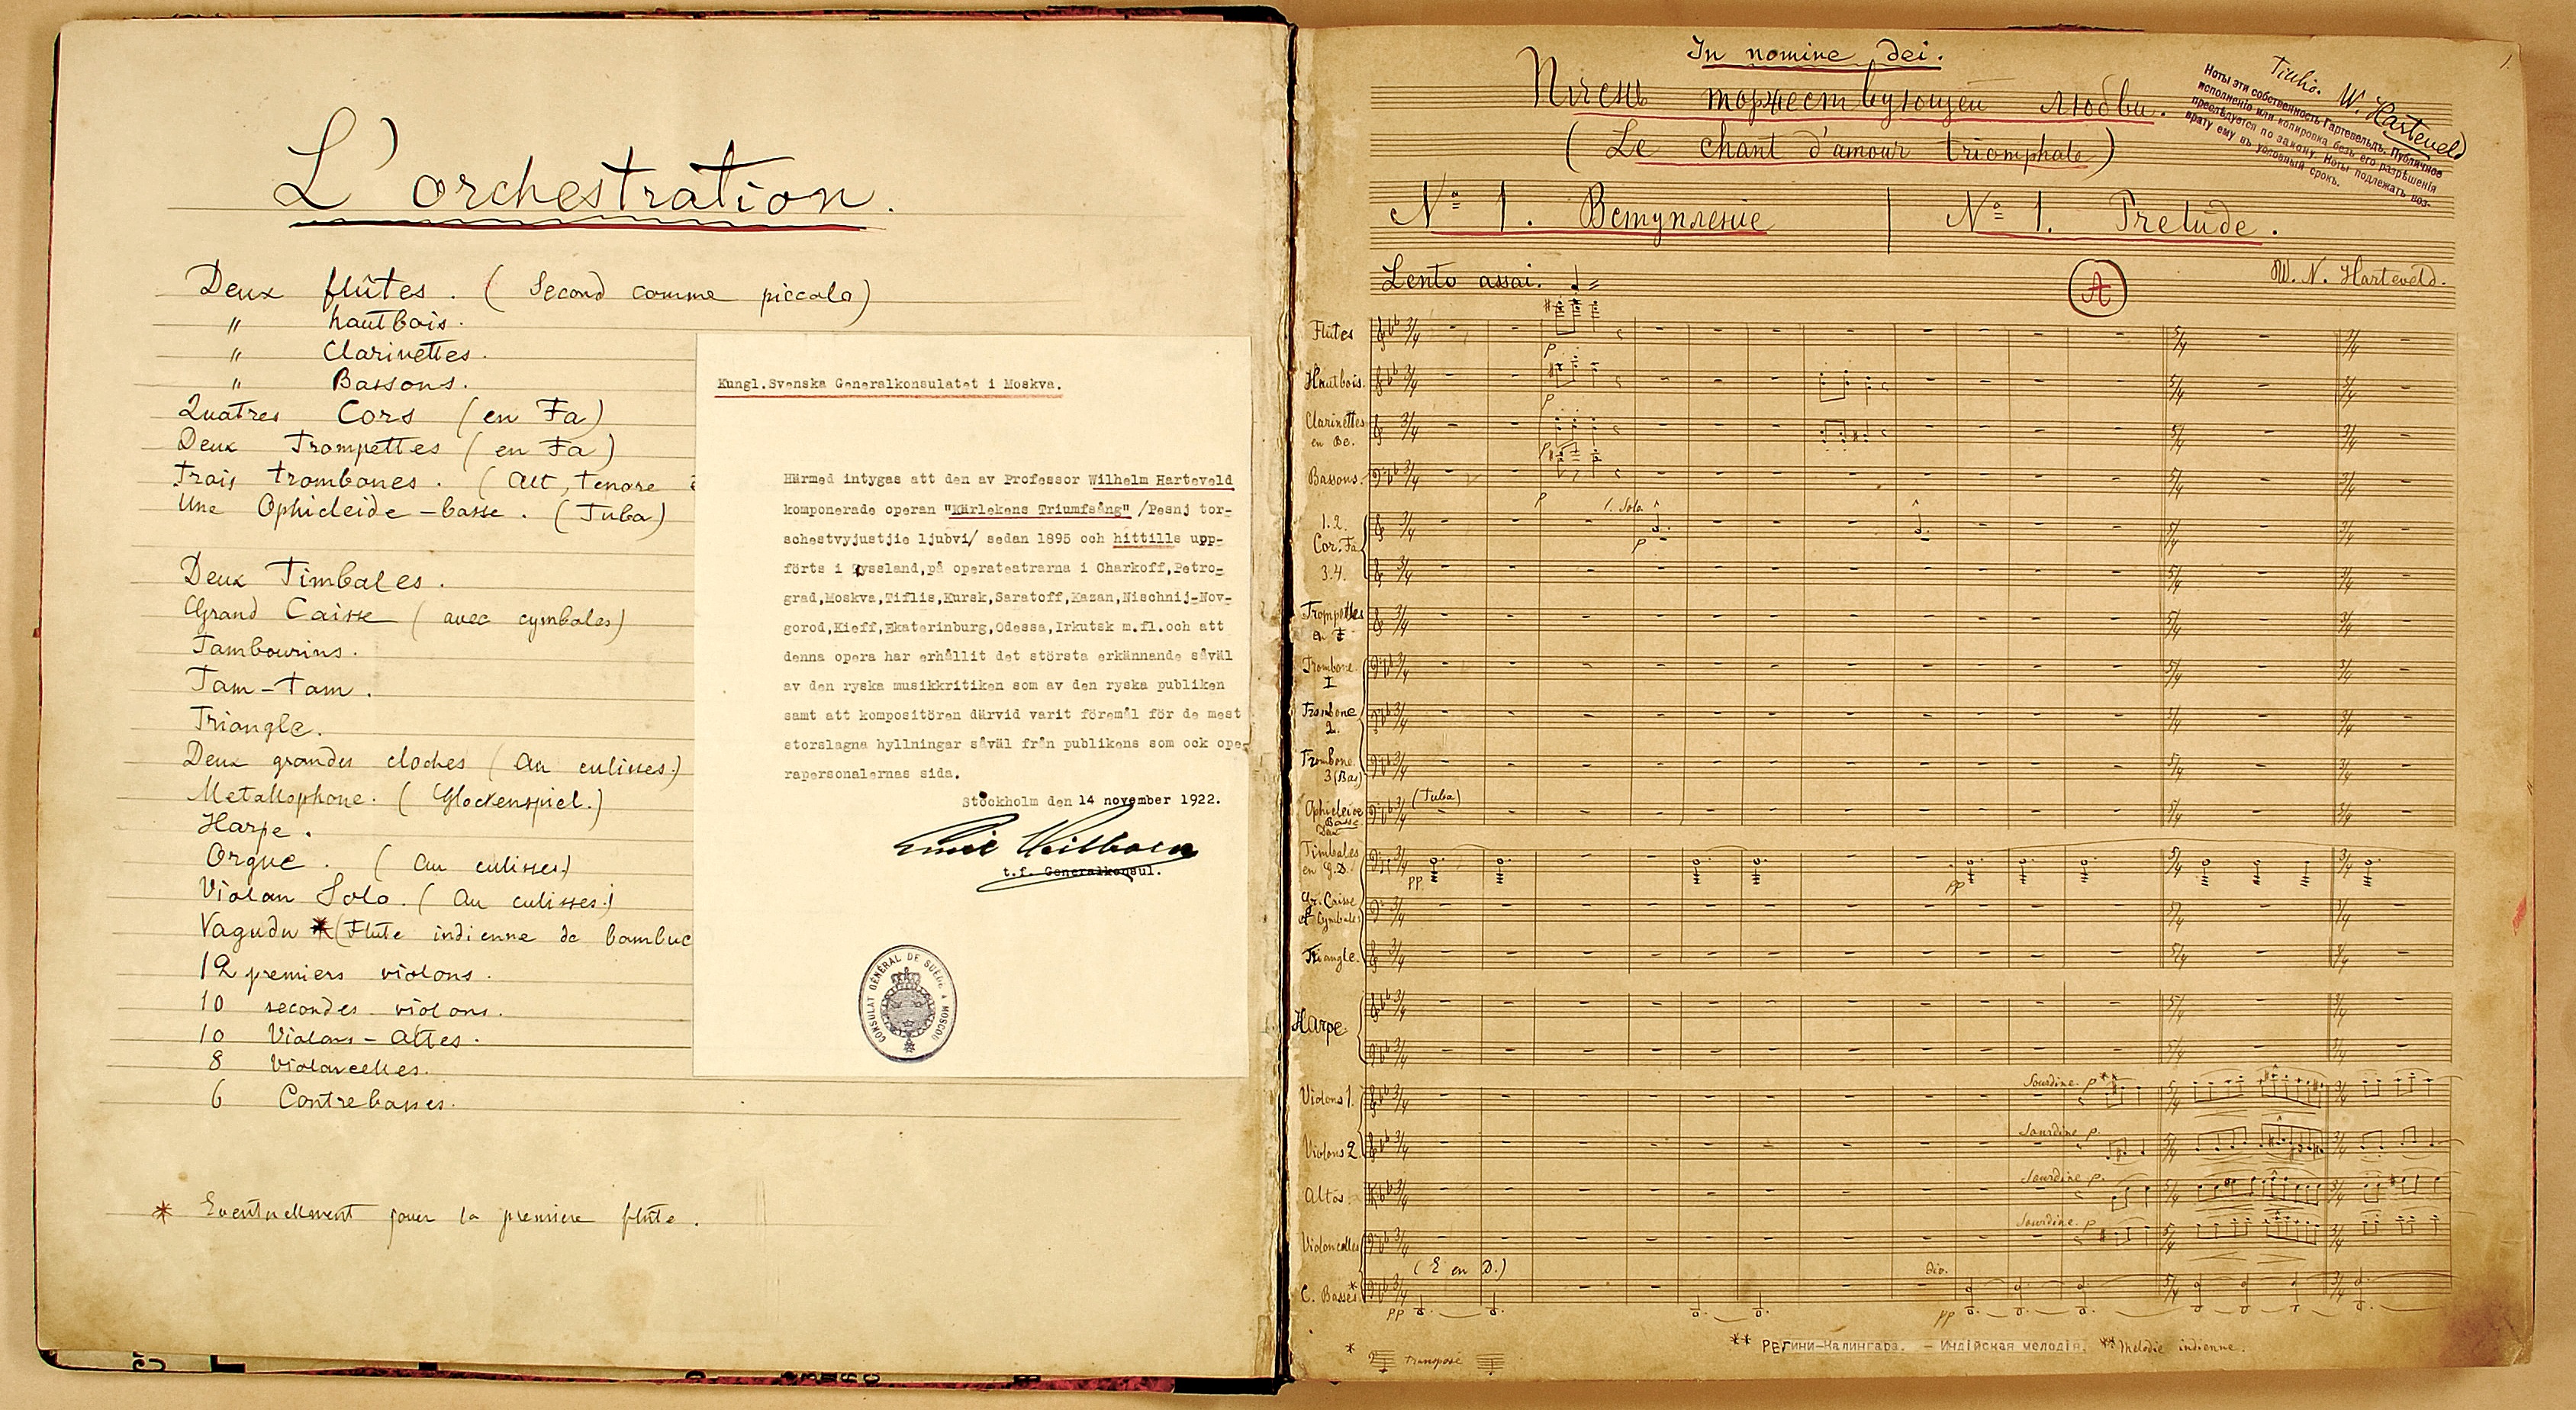 L'orchestration.
Deux flûtes. (Second comme piccolo)
" hautbois.
" Clarinettes.
" Bassons.
Quatres Cors (en Fa)
Deux Trompettes (en Fa)
Trois trombones. (Alt, tenore
Une Ophicleide-basse. (Tuba)
Deux Timbales.
Grand Caisse (avec cymbales)
Tambourins.
Tam-tam.
Triangle.
Deux grandes cloches (au culisses.)
Metallophone. (Glockenspiel.)
Harpe.
Orgue. (au culisses)
Violon Solo. (au culisses)
Vagudu * (Flûte indienne de bambuc
12 premiers violons.
10 secondes violons.
10 Violons-altes.
8 Violoncelles.
6 Contrebasses.
* Eventuellement pour la premiere flûte.
Kungl.Svenska Generalkonsulatet i Moskva.
Härmed intygas att den av Professor Wilhelm Harteveld
komponerade operan "Kärlekens Triumfsång" /Pesnj tor-
schestvyjustjie ljubvi/ sedan 1895 och hittills upp-
förts i Ryssland,på operateatrarna i Charkoff,Petro-
grad,Moskva,Tiflis,Kursk,Saratoff,Kazan,Nischnij-Nov-
gorod,Kieff,Ekaterinburg,Odessa,Irkutsk m.fl.och att
denna opera har erhållit det största erkännande såväl
av den ryska musikkritiken som av den ryska publiken
samt att kompositören därvid varit föremål för de mest
storslagna hyllningar såväl från publikens som ock ope-
rapersonalernas sida.
Stockholm den 14 november 1922.
t.f. Generalkonsul.
CONSULAT GÉNÉRAL DE SUÈDE à MOSCOU
In nomine dei.
Пѣснь торжествующей любви.
(Le chant d'amour triomphale)
W. Harteveld
Ноты эти собственность Гартевельдъ. Публичное
исполненіе или копировка безъ его разрѣшенія
преслѣдуется по закону. Ноты подлежатъ воз-
врату ему въ условный срокъ.
№ 1. Вступленіе | № 1. Prelude.
Lento assai.
A
W. N. Harteveld.
Flûtes
p
Hautbois.
p
Clarinettes
p
Bassons.
p
1. Solo
1. 2.
Cor. Fa
p
3. 4.
Trompettes
Trombone
I
Trombone
2.
Trombone
3 (Bas)
Ophicleide
Basse
(Tuba)
Timbales
en G.D.
pp
pp
Gr. Caisse
et Cymbales
Triangle.
Harpe
Violons 1.
Sourdine. p **
Violons 2.
Sourdine p.
Altos
Sourdine p.
Violoncelles
Sourdine. p
(E en D.)
C. Basses *
div.
pp
pp
* transposé
** РЕГИНИ-Калингара. - Индійская мелодія. ** Melodie indienne.